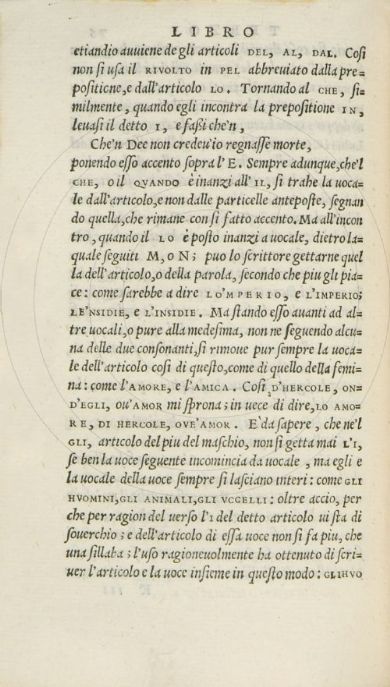 LIBRO
etiandio auuiene de gli articoli DEL, AL, DAL. Cosi
non si usa il RIVOLTO in PEL abbreuiato dalla pre=
positione, e dall'articolo LO. Tornando al CHE, si=
milmente, quando egli incontra la prepositione IN,
leuasi il detto I, e fassi che'n,
Che'n Dee non credeu'io regnasse morte,
ponendo esso accento sopra l'E. Sempre adunque, che'l
CHE, o il QVANDO è inanzi all'IL, si trahe la uoca=
le dall'articolo, e non dalle particelle anteposte, segnan
do quella, che rimane con si fatto accento. Ma all'incon
tro, quando il LO è posto inanzi a uocale, dietro la=
quale seguiti M, o N; puo lo scrittore gettarne quel
la dell'articolo, o della parola, secondo che piu gli pia=
ce: come sarebbe a dire LO'MPERIO, e L'IMPERIO;
LE'NSIDIE, e L'INSIDIE. Ma stando esso auanti ad al=
tre uocali, o pure alla medesima, non ne seguendo alcu=
na delle due consonanti, si rimoue pur sempre la uoca=
le dell'articolo cosi di questo, come di quello della femi=
na: come L'AMORE, e L'AMICA. Cosi D'HERCOLE, ON=
D'EGLI, ou'AMOR mi sprona; in uece di dire, LO AMO=
RE, DI HERCOLE, OVE'AMOR. E' da sapere, che ne'l
GLI, articolo del piu del maschio, non si getta mai L'I,
se ben la uoce seguente incomincia da uocale, ma egli e
la uocale della uoce sempre si lasciano interi: come GLI
HVOMINI, GLI ANIMALI, GLI VCCELLI: oltre accio, per
che per ragion del uerso l'I del detto articolo ui sta di
souerchio; e dell'articolo di essa uoce non si fa piu, che
una sillaba; l'uso ragioneuolmente ha ottenuto di scri=
uer l'articolo e la uoce insieme in questo modo: GLIHVO